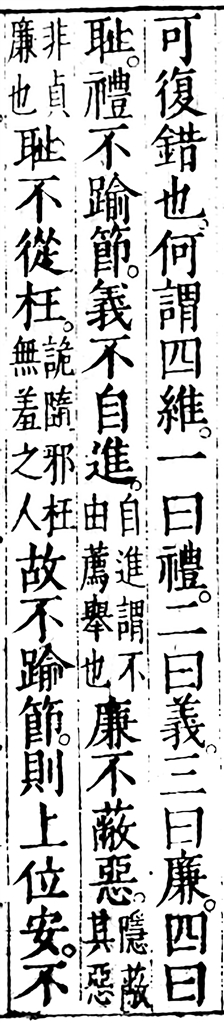 可復錯也何謂四維。一曰禮。二曰義。三曰廉。四曰
耻。禮不踰節。義不自進。自進謂不由薦舉也廉不蔽惡。隱蔽其惡
非貞廉也耻不從枉。詭隨邪枉無羞之人故不踰節。則上位安。不